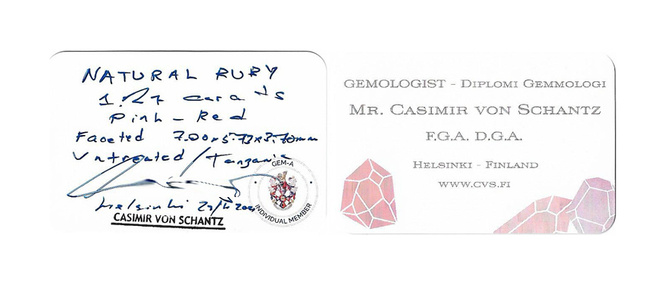 NATURAL RUBY
1.27 carats
Pink - Red
Faceted 7.00x5.73x3.70mm
Untreated / Tanzania
Helsinki
CASIMIR VON SCHANTZ
GEM-A
INDIVIDUAL MEMBER
GEMOLOGIST - DIPLOMI GEMMOLOGI
MR. CASIMIR VON SCHANTZ
F.G.A. D.G.A.
HELSINKI - FINLAND
WWW.CVS.FI